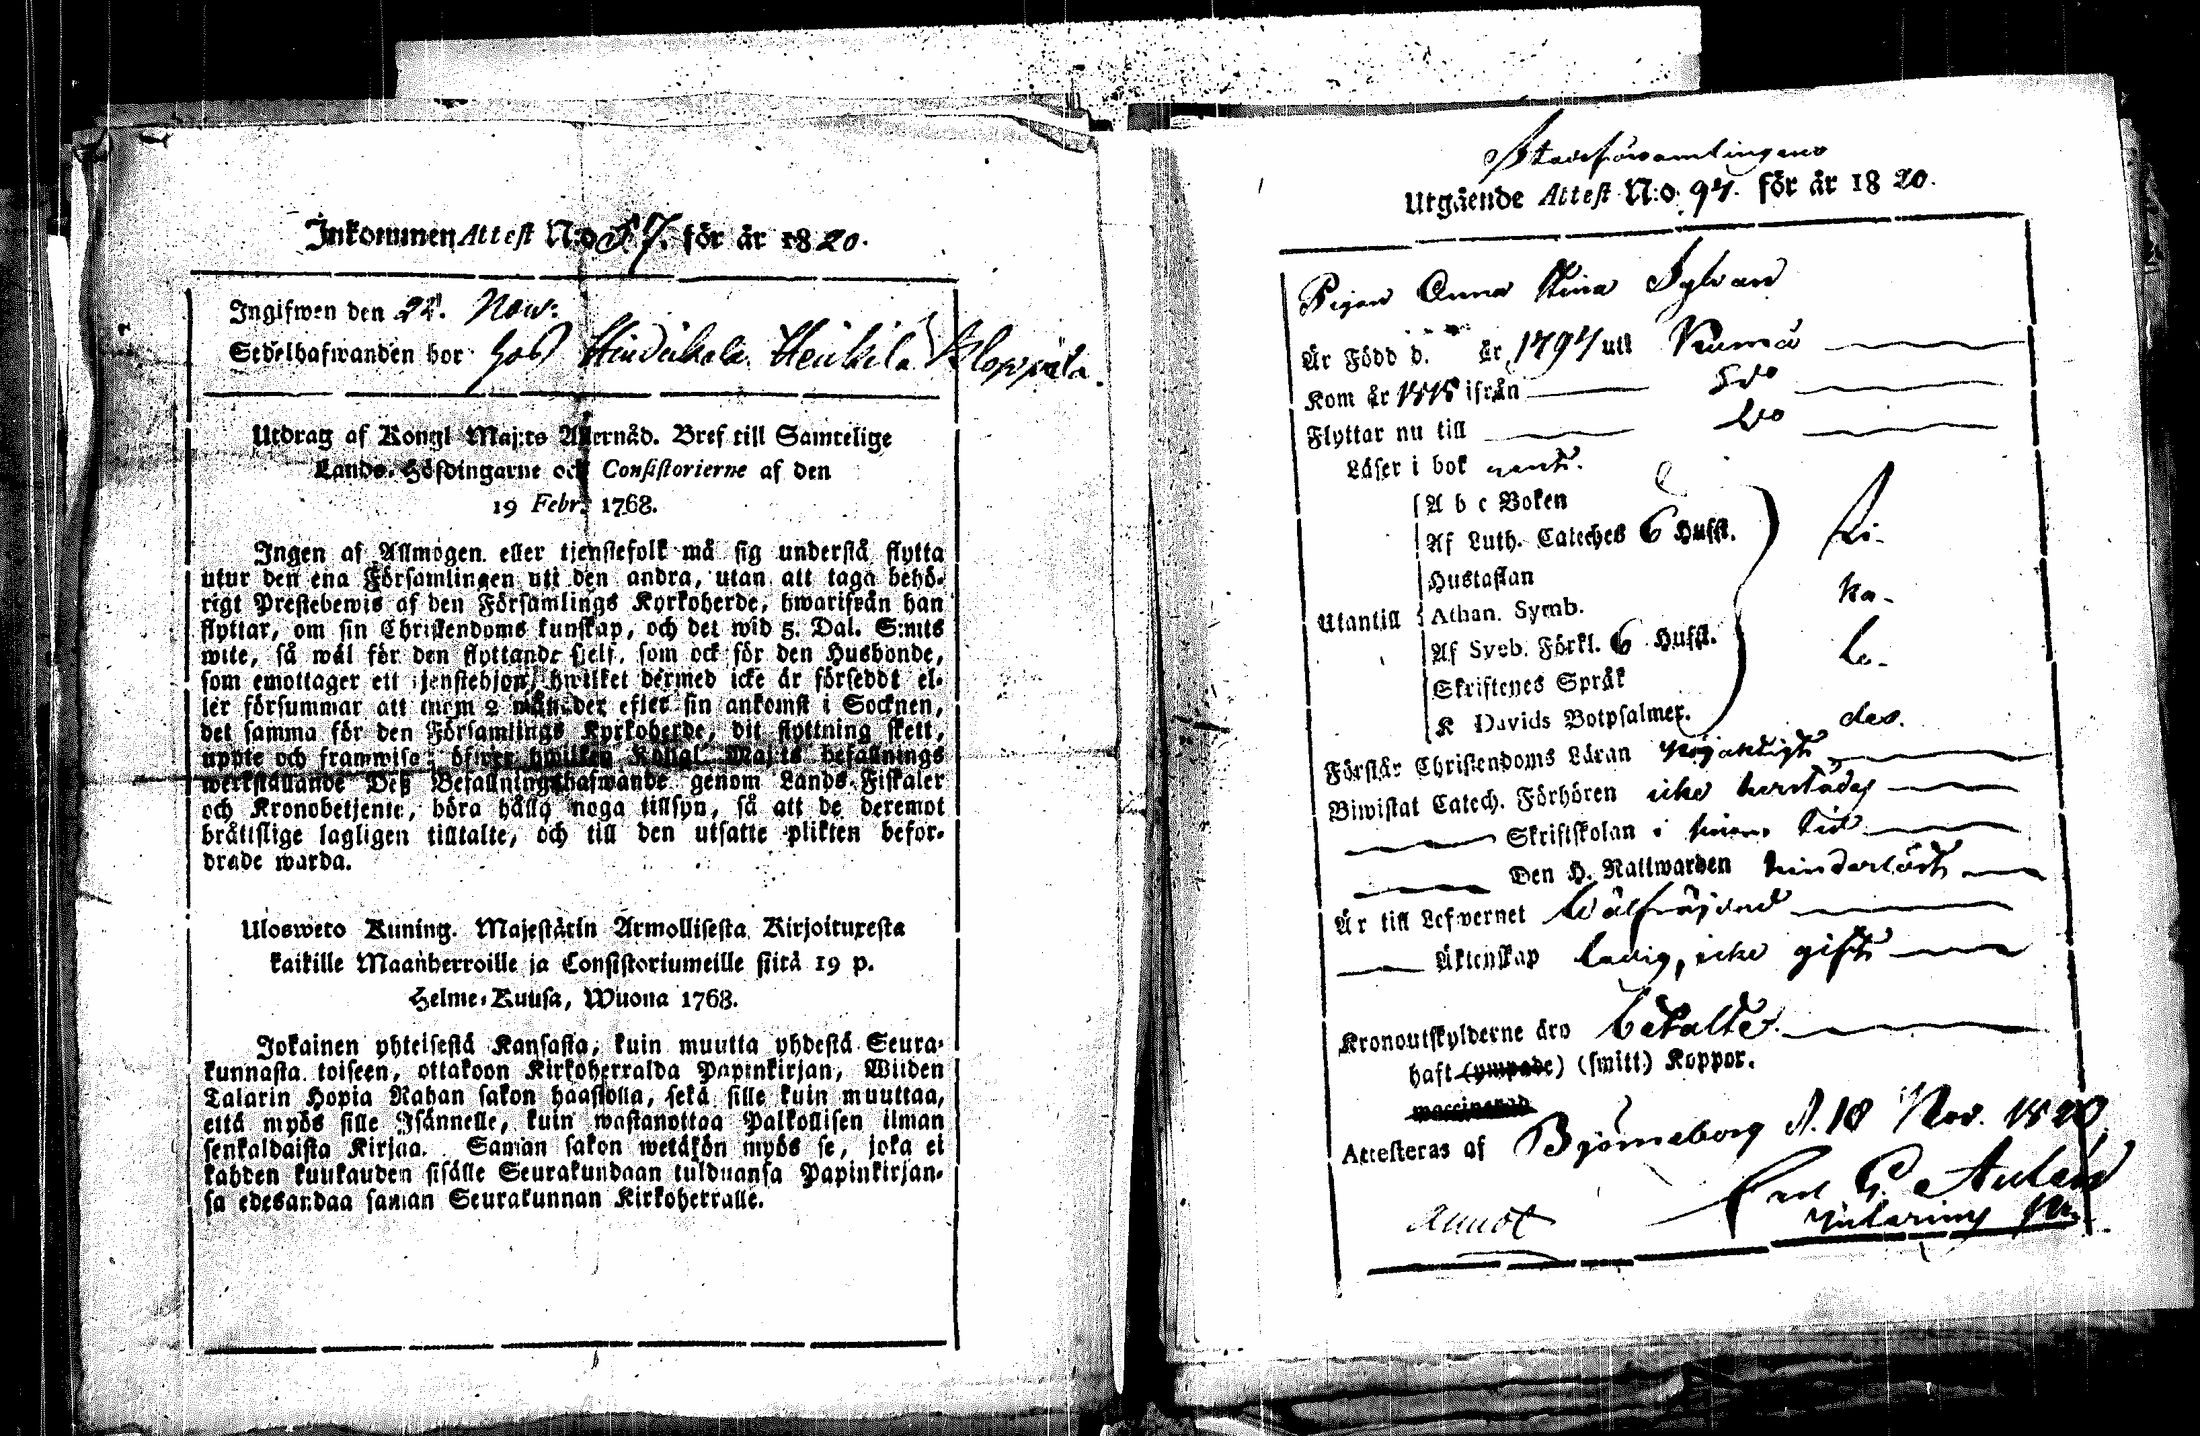 Inkommen Attest N:o 57. för år 1820.
Ingifwen den 22. Nov:
Sedelhafwanden bor hos
Utdrag af Kongl Maj:ts Allernåd. Bref till Samtelige
Lands-Höfdingarne och Consistorierne af den
19 Febr. 1768.
Ingen af Allmogen eller tjenstefolk må sig understå flytta
utur den ena Församlingen uti den andra, utan att taga behö-
rigt Prestebewis af den Församlings Kyrkoherde, hwarifrån han
flyttar, om sin Christendoms kunskap, och det wid 5. Dal. S:mts
wite, så wäl för den flyttande sjelf, som ock för den Husbonde,
som emottager ett tjenstehjon, hwilket dermed icke är försedd el-
ler försummar att inom 2 månader efter sin ankomst i Socknen,
det samma för den Församlings Kyrkoherde, dit flyttning skett,
uppte och framwisa; öfwer hwilken Kongl. Maj:ts befallnings
werkställande Deß Befallningshafwande genom Lands-Fiskaler
och Kronobetjente, böra hålla noga tillsyn, så att de deremot
bråttslige lagligen tilltalte, och till den utsatte plikten befor-
drade warda.
Ulosweto Kuning. Majestätin Armollisesta Kirjoituxesta
kaikille Maanherroille ja Consistoriumeille siitä 19 p.
Helme-Kuusa, Wuona 1768.
Jokainen yhteisestä Kansasta, kuin muutta yhdestä Seura-
kunnasta toiseen, ottakoon Kirkoherralda Papinkirjan, Wiiden
Talarin Hopia Rahan sakon haastolla, sekä sille kuin muuttaa,
että myös sille Isännelle, kuin wastanottaa Palkollisen ilman
senkaldaista Kirjaa. Saman sakon wetäkön myös se, joka ei
kahden kuukauden sisälle Seurakundaan tulduansa Papinkirjan-
sa edesandaa saman Seurakunnan Kirkoherralle.
Stadsförsamlingens
Utgående Attest N:o 94. för år 1820.
Pigan Anna Stina Sylvan
Är Född d. år 1794 uti Raumo
Kom år 1818 ifrån Do
Flyttar nu till Do
Läser i bok
A b c Boken
Af Luth. Cateches 6 Hufst. Li-
Hustaflan
Utantill Athan. Symb. ka-
Af Sveb. Förkl. 6 Hufst. le-
Skriftenes Språk
K Davids Botpsalmer. des.
Förstår Christendoms Läran nöjaktigt
Biwistat Catech. Förhören icke härstädes
Skriftskolan i sinom tid
Den H. Nattwarden hinderlöst
Är till Lefwernet Wälfräjdad
Äktenskap ledig, icke gift
Kronoutskylderne äro betalte.
haft (ympade) (smitt) Koppor.
vaccinerad
Attesteras af Björneborg d. 18 Nov. 1820.